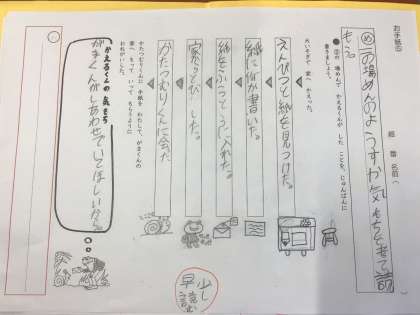 お手紙⑤
組 番 名前(
め 二の場めんのようすか気もちを考えて読
もう。
●二の場めんで かえるくんが した ことを、じゅんばんに
書きましょう。
大いそぎで 家へ かえった。
えんぴつと紙を見つけた。
紙に何か書いた。
紙をふうとうに入れた。
家からとび出した。
かたつむりくんに会った
かたつむりくんに 手紙を わたして、がまくんの
家へ もって いって もらうように
おねがいした。
かえるくんの 気もち
がまくんがしあわせでいてほしいなぁ。
少し
早く
読む